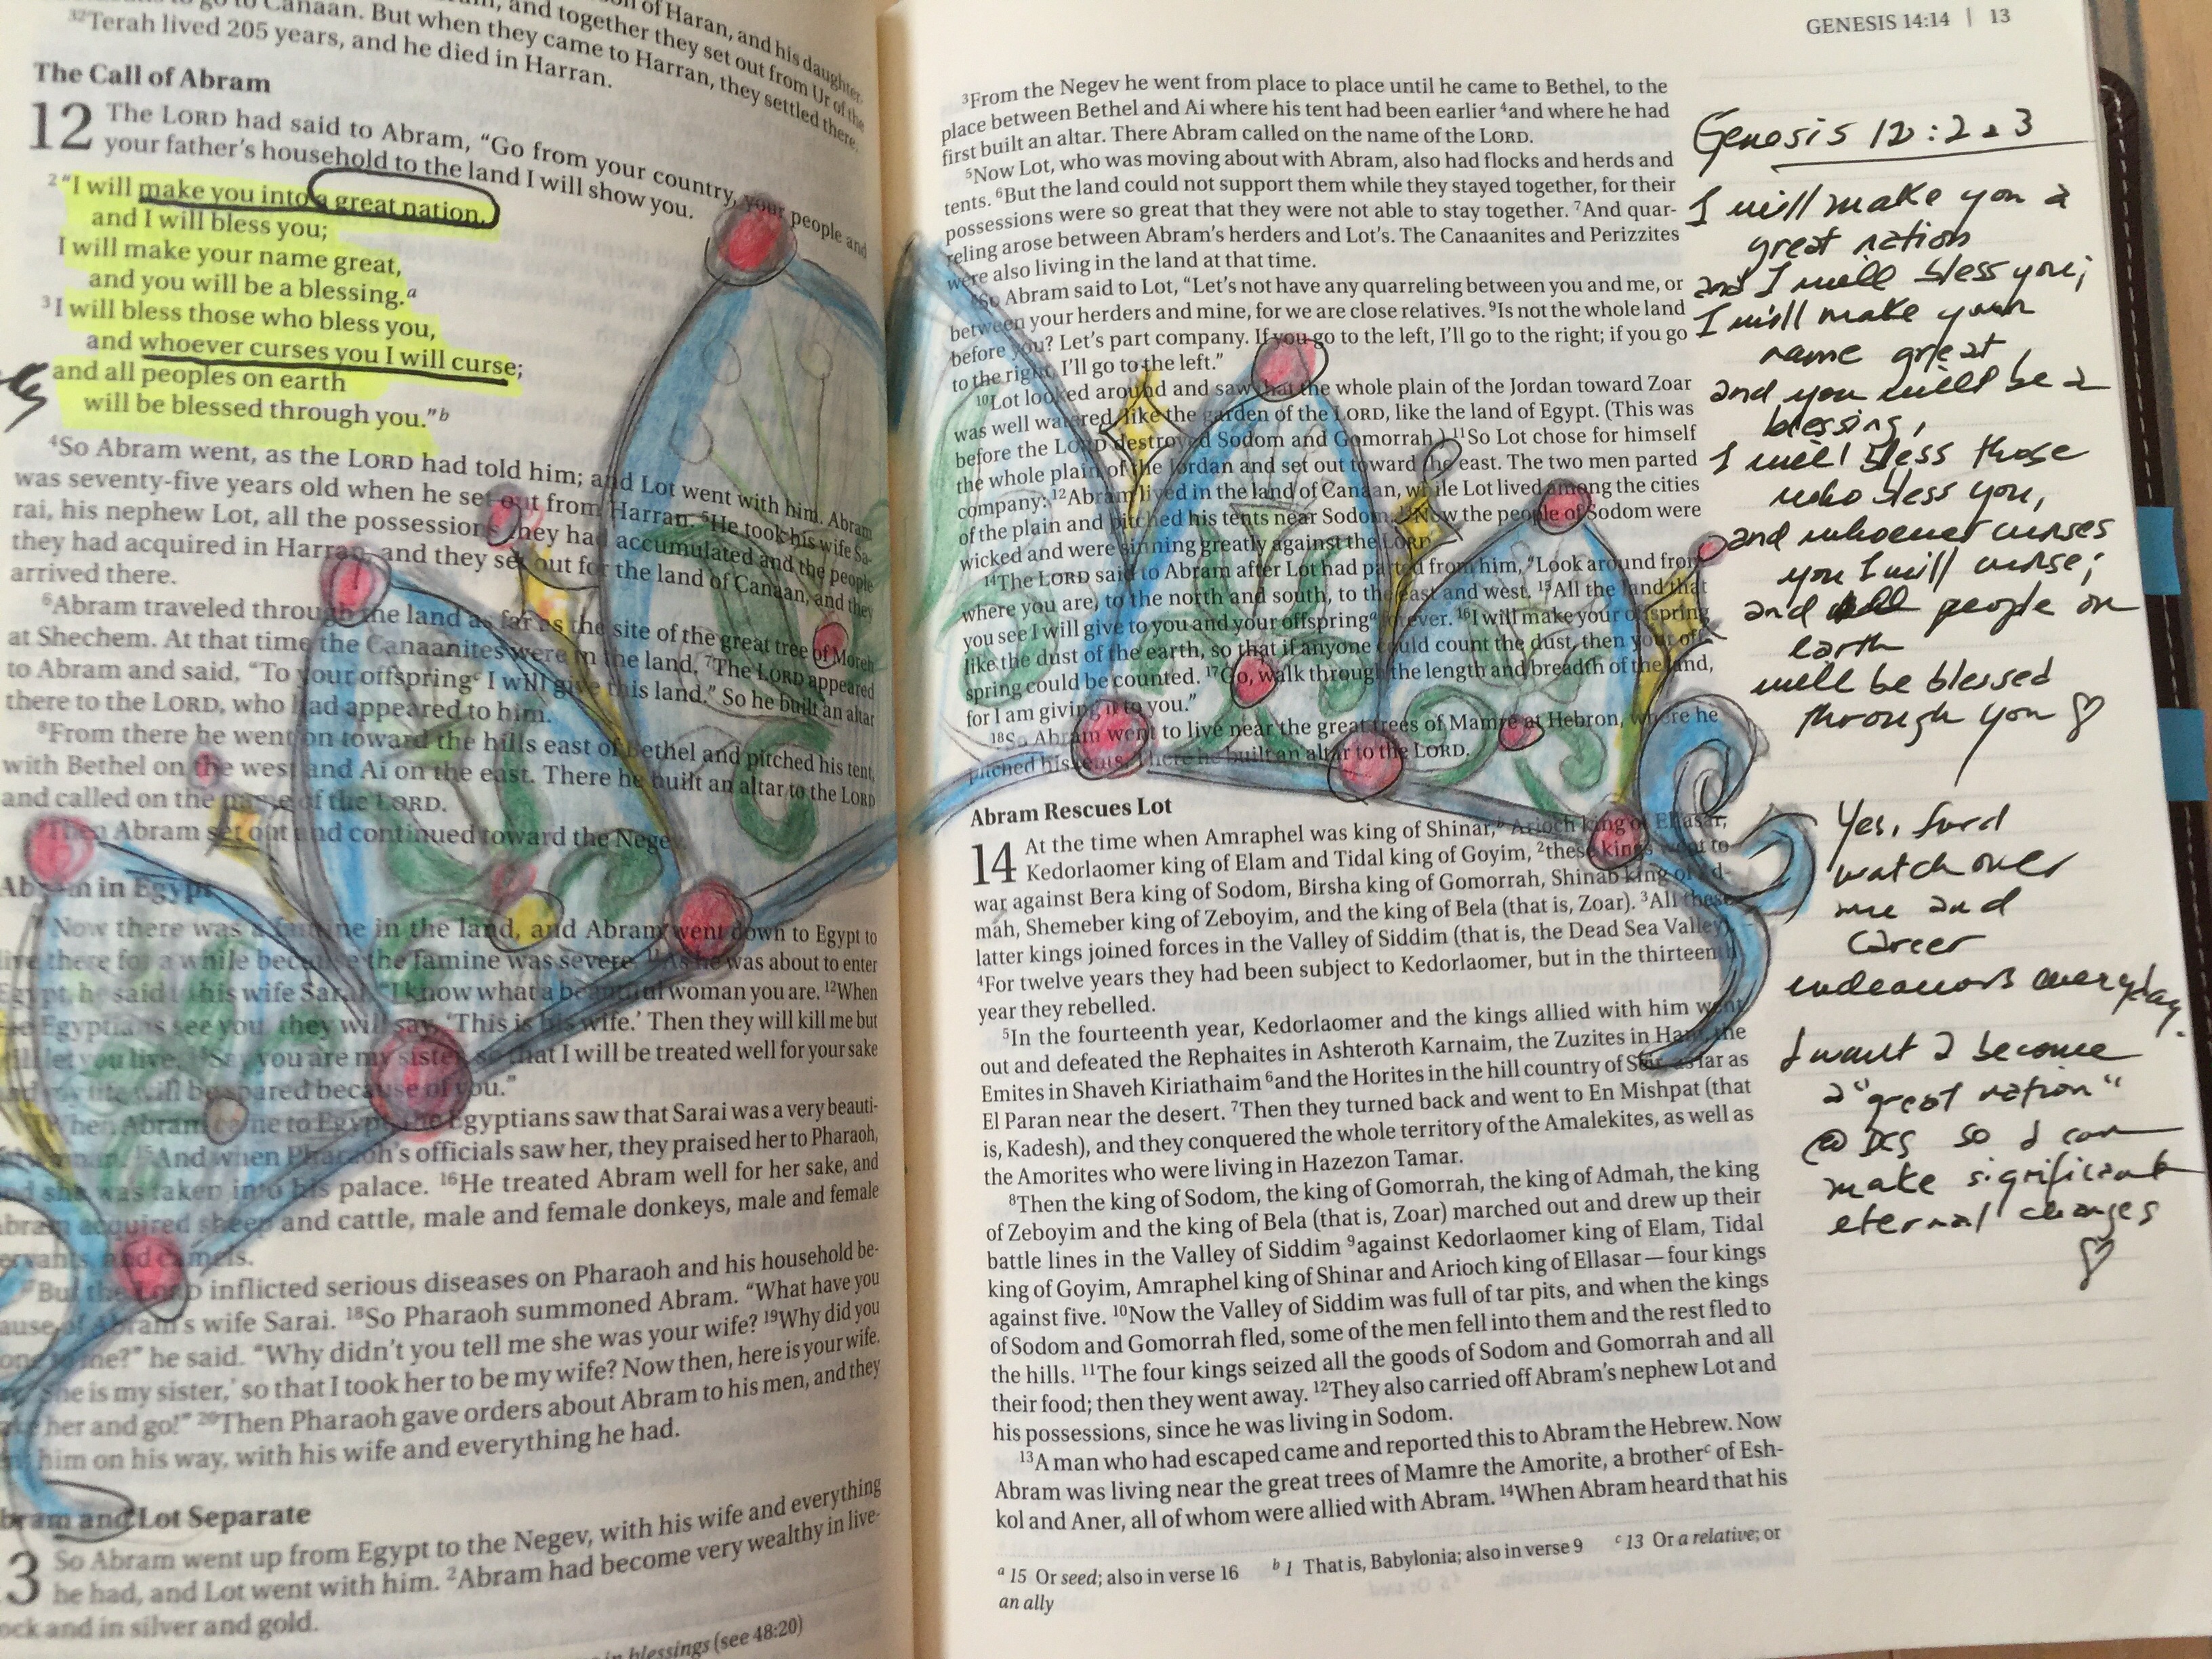 of Haran, and his daughter-
and together they set out from Ur of the
Canaan. But when they came to Harran, they settled there.
32Terah lived 205 years, and he died in Harran.
The Call of Abram
12 The LORD had said to Abram, “Go from your country, your people and
your father’s household to the land I will show you.
2“I will make you into a great nation,
and I will bless you;
I will make your name great,
and you will be a blessing.a
3I will bless those who bless you,
and whoever curses you I will curse;
and all peoples on earth
will be blessed through you.”b
4So Abram went, as the LORD had told him; and Lot went with him. Abram
was seventy-five years old when he set out from Harran. 5He took his wife Sa-
rai, his nephew Lot, all the possessions they had accumulated and the people
they had acquired in Harran, and they set out for the land of Canaan, and they
arrived there.
6Abram traveled through the land as far as the site of the great tree of Moreh
at Shechem. At that time the Canaanites were in the land. 7The LORD appeared
to Abram and said, “To your offspringc I will give this land.” So he built an altar
there to the LORD, who had appeared to him.
8From there he went on toward the hills east of Bethel and pitched his tent,
with Bethel on the west and Ai on the east. There he built an altar to the LORD
and called on the name of the LORD.
Then Abram set out and continued toward the Negev.
Abram in Egypt
Now there was a famine in the land, and Abram went down to Egypt to
live there for a while because the famine was severe. 11As he was about to enter
Egypt, he said to his wife Sarai, “I know what a beautiful woman you are. 12When
the Egyptians see you, they will say, ‘This is his wife.’ Then they will kill me but
will let you live. 13Say you are my sister, so that I will be treated well for your sake
and my life will be spared because of you.”
When Abram came to Egypt, the Egyptians saw that Sarai was a very beauti-
woman. 15And when Pharaoh’s officials saw her, they praised her to Pharaoh,
and she was taken into his palace. 16He treated Abram well for her sake, and
Abram acquired sheep and cattle, male and female donkeys, male and female
servants and camels.
But the LORD inflicted serious diseases on Pharaoh and his household be-
cause of Abram’s wife Sarai. 18So Pharaoh summoned Abram. “What have you
done to me?” he said. “Why didn’t you tell me she was your wife? 19Why did you
‘She is my sister,’ so that I took her to be my wife? Now then, here is your wife.
her and go!” 20Then Pharaoh gave orders about Abram to his men, and they
him on his way, with his wife and everything he had.
Abram and Lot Separate
3 So Abram went up from Egypt to the Negev, with his wife and everything
he had, and Lot went with him. 2Abram had become very wealthy in live-
ock and in silver and gold.
in blessings (see 48:20)
GENESIS 14:14 | 13
3From the Negev he went from place to place until he came to Bethel, to the
place between Bethel and Ai where his tent had been earlier 4and where he had
first built an altar. There Abram called on the name of the LORD.
5Now Lot, who was moving about with Abram, also had flocks and herds and
tents. 6But the land could not support them while they stayed together, for their
possessions were so great that they were not able to stay together. 7And quar-
reling arose between Abram’s herders and Lot’s. The Canaanites and Perizzites
were also living in the land at that time.
8So Abram said to Lot, “Let’s not have any quarreling between you and me, or
between your herders and mine, for we are close relatives. 9Is not the whole land
before you? Let’s part company. If you go to the left, I’ll go to the right; if you go
to the right, I’ll go to the left.”
10Lot looked around and saw that the whole plain of the Jordan toward Zoar
was well watered, like the garden of the LORD, like the land of Egypt. (This was
before the LORD destroyed Sodom and Gomorrah.) 11So Lot chose for himself
the whole plain of the Jordan and set out toward the east. The two men parted
company: 12Abram lived in the land of Canaan, while Lot lived among the cities
of the plain and pitched his tents near Sodom. 13Now the people of Sodom were
wicked and were sinning greatly against the LORD.
14The LORD said to Abram after Lot had parted from him, “Look around from
where you are, to the north and south, to the east and west. 15All the land that
you see I will give to you and your offspringa forever. 16I will make your offspring
like the dust of the earth, so that if anyone could count the dust, then your off-
spring could be counted. 17Go, walk through the length and breadth of the land,
for I am giving it to you.”
18So Abram went to live near the great trees of Mamre at Hebron, where he
pitched his tents. There he built an altar to the LORD.
Abram Rescues Lot
14 At the time when Amraphel was king of Shinar,b Arioch king of Ellasar,
Kedorlaomer king of Elam and Tidal king of Goyim, 2these kings went to
war against Bera king of Sodom, Birsha king of Gomorrah, Shinab king of Ad-
mah, Shemeber king of Zeboyim, and the king of Bela (that is, Zoar). 3All these
latter kings joined forces in the Valley of Siddim (that is, the Dead Sea Valley).
4For twelve years they had been subject to Kedorlaomer, but in the thirteenth
year they rebelled.
5In the fourteenth year, Kedorlaomer and the kings allied with him went
out and defeated the Rephaites in Ashteroth Karnaim, the Zuzites in Ham, the
Emites in Shaveh Kiriathaim 6and the Horites in the hill country of Seir, as far as
El Paran near the desert. 7Then they turned back and went to En Mishpat (that
is, Kadesh), and they conquered the whole territory of the Amalekites, as well as
the Amorites who were living in Hazezon Tamar.
8Then the king of Sodom, the king of Gomorrah, the king of Admah, the king
of Zeboyim and the king of Bela (that is, Zoar) marched out and drew up their
battle lines in the Valley of Siddim 9against Kedorlaomer king of Elam, Tidal
king of Goyim, Amraphel king of Shinar and Arioch king of Ellasar—four kings
against five. 10Now the Valley of Siddim was full of tar pits, and when the kings
of Sodom and Gomorrah fled, some of the men fell into them and the rest fled to
the hills. 11The four kings seized all the goods of Sodom and Gomorrah and all
their food; then they went away. 12They also carried off Abram’s nephew Lot and
his possessions, since he was living in Sodom.
13A man who had escaped came and reported this to Abram the Hebrew. Now
Abram was living near the great trees of Mamre the Amorite, a brotherc of Esh-
kol and Aner, all of whom were allied with Abram. 14When Abram heard that his
a 15 Or seed; also in verse 16 b 1 That is, Babylonia; also in verse 9 c 13 Or a relative; or
an ally
Genesis 12:2 & 3
I will make you a
great nation
and I will bless you;
I will make your
name great,
and you will be a
blessing,
I will bless those
who bless you,
and whoever curses
you I will curse;
and all people on
earth
will be blessed
through you ♡
Yes, Lord
watch over
me and
career
endeavors everyday.
I want 2 become
a "great nation"
@ DCS so I can
make significant
eternal changes
♡